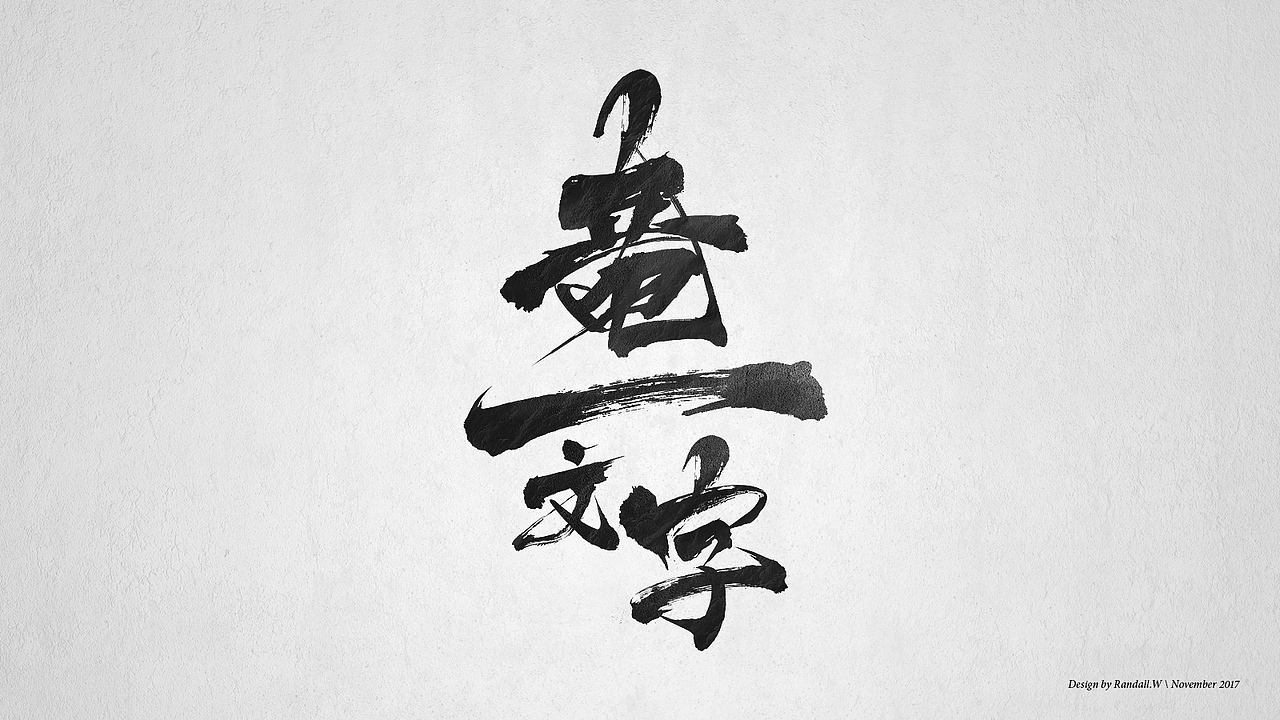 一
文字
Design by Randall.W \ November 2017